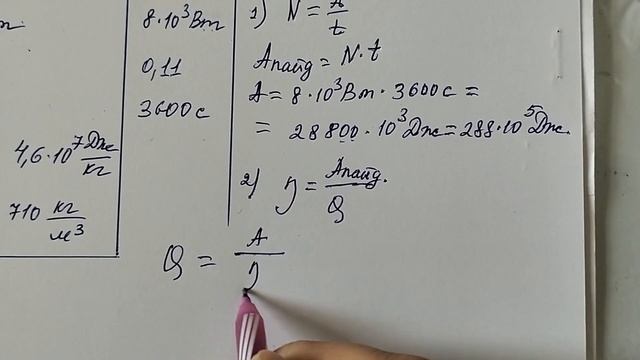 8·10³Вт
0,11
3600 с
4,6·10⁷ Дж/кг
710 кг/м³
1) N = A/t
Aпайд = N·t
A = 8·10³Вт · 3600 с =
= 28800·10³Дж = 288·10⁵Дж.
2) η = Aпайд./Q
Q = A/η